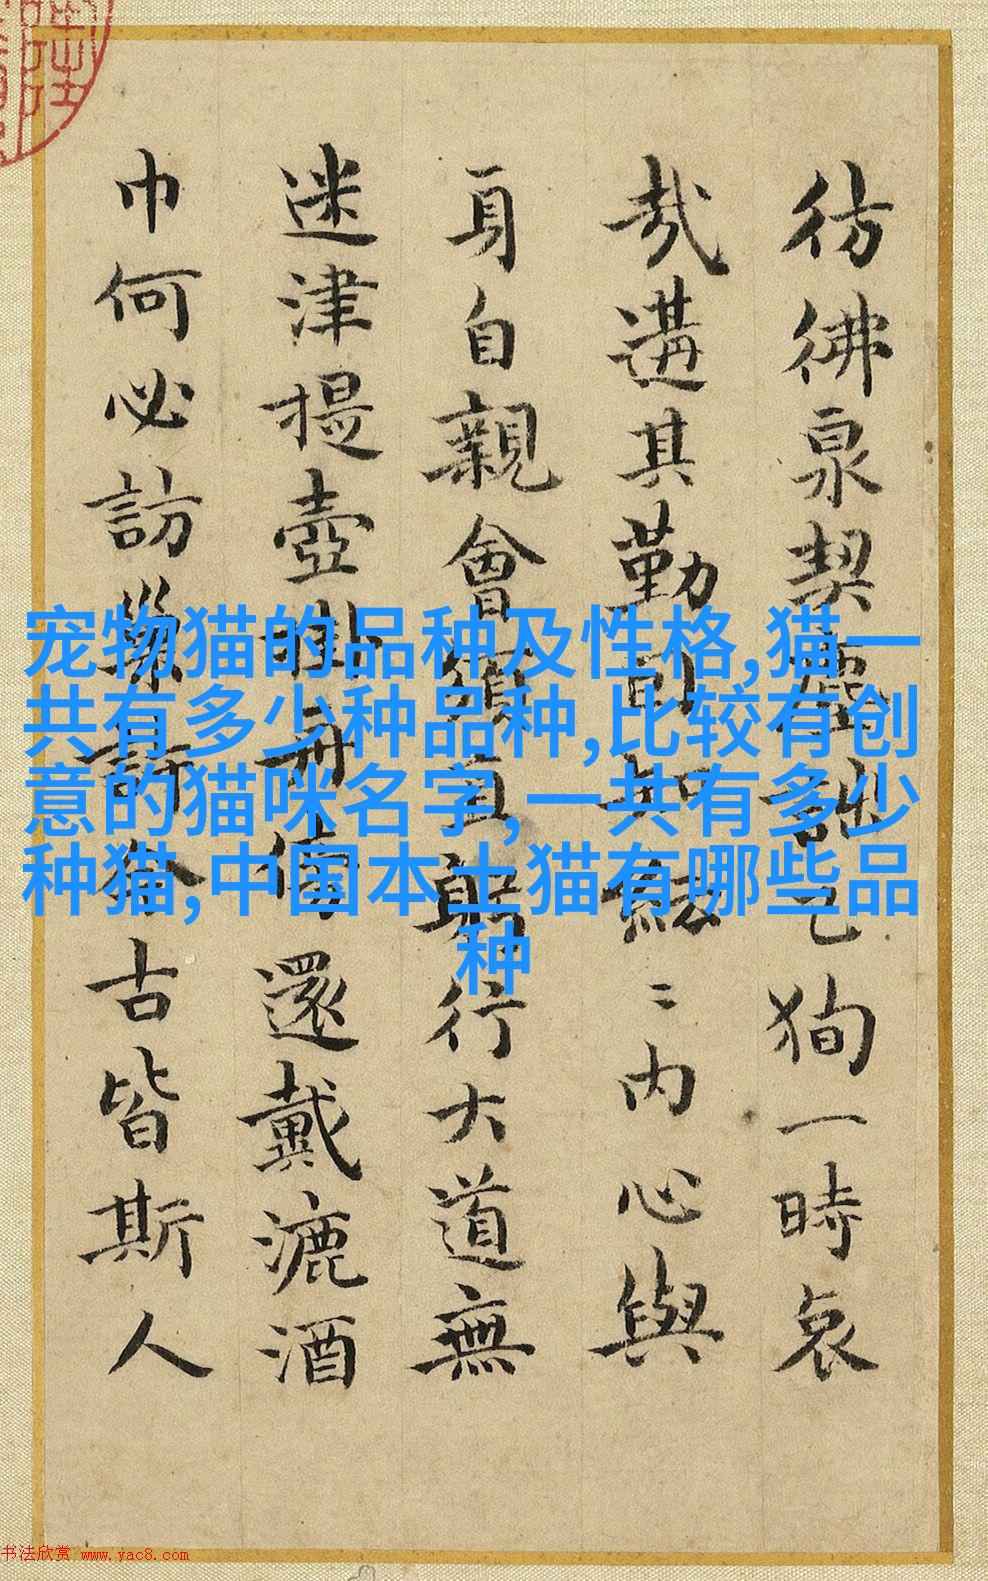 彷彿泉契塵詘已狥一時哀
哉遘其勤自如鮌〻内心與
身自親會須直躬行大道無
迷津提壺掛舟傍還戴漉酒
巾何必訪巢許今古皆斯人
宠物猫的品种及性格,猫一
共有多少种品种,比较有创
意的猫咪名字,一共有多少
种猫,中国本土猫有哪些品
种
书法欣赏 www.yac8.com